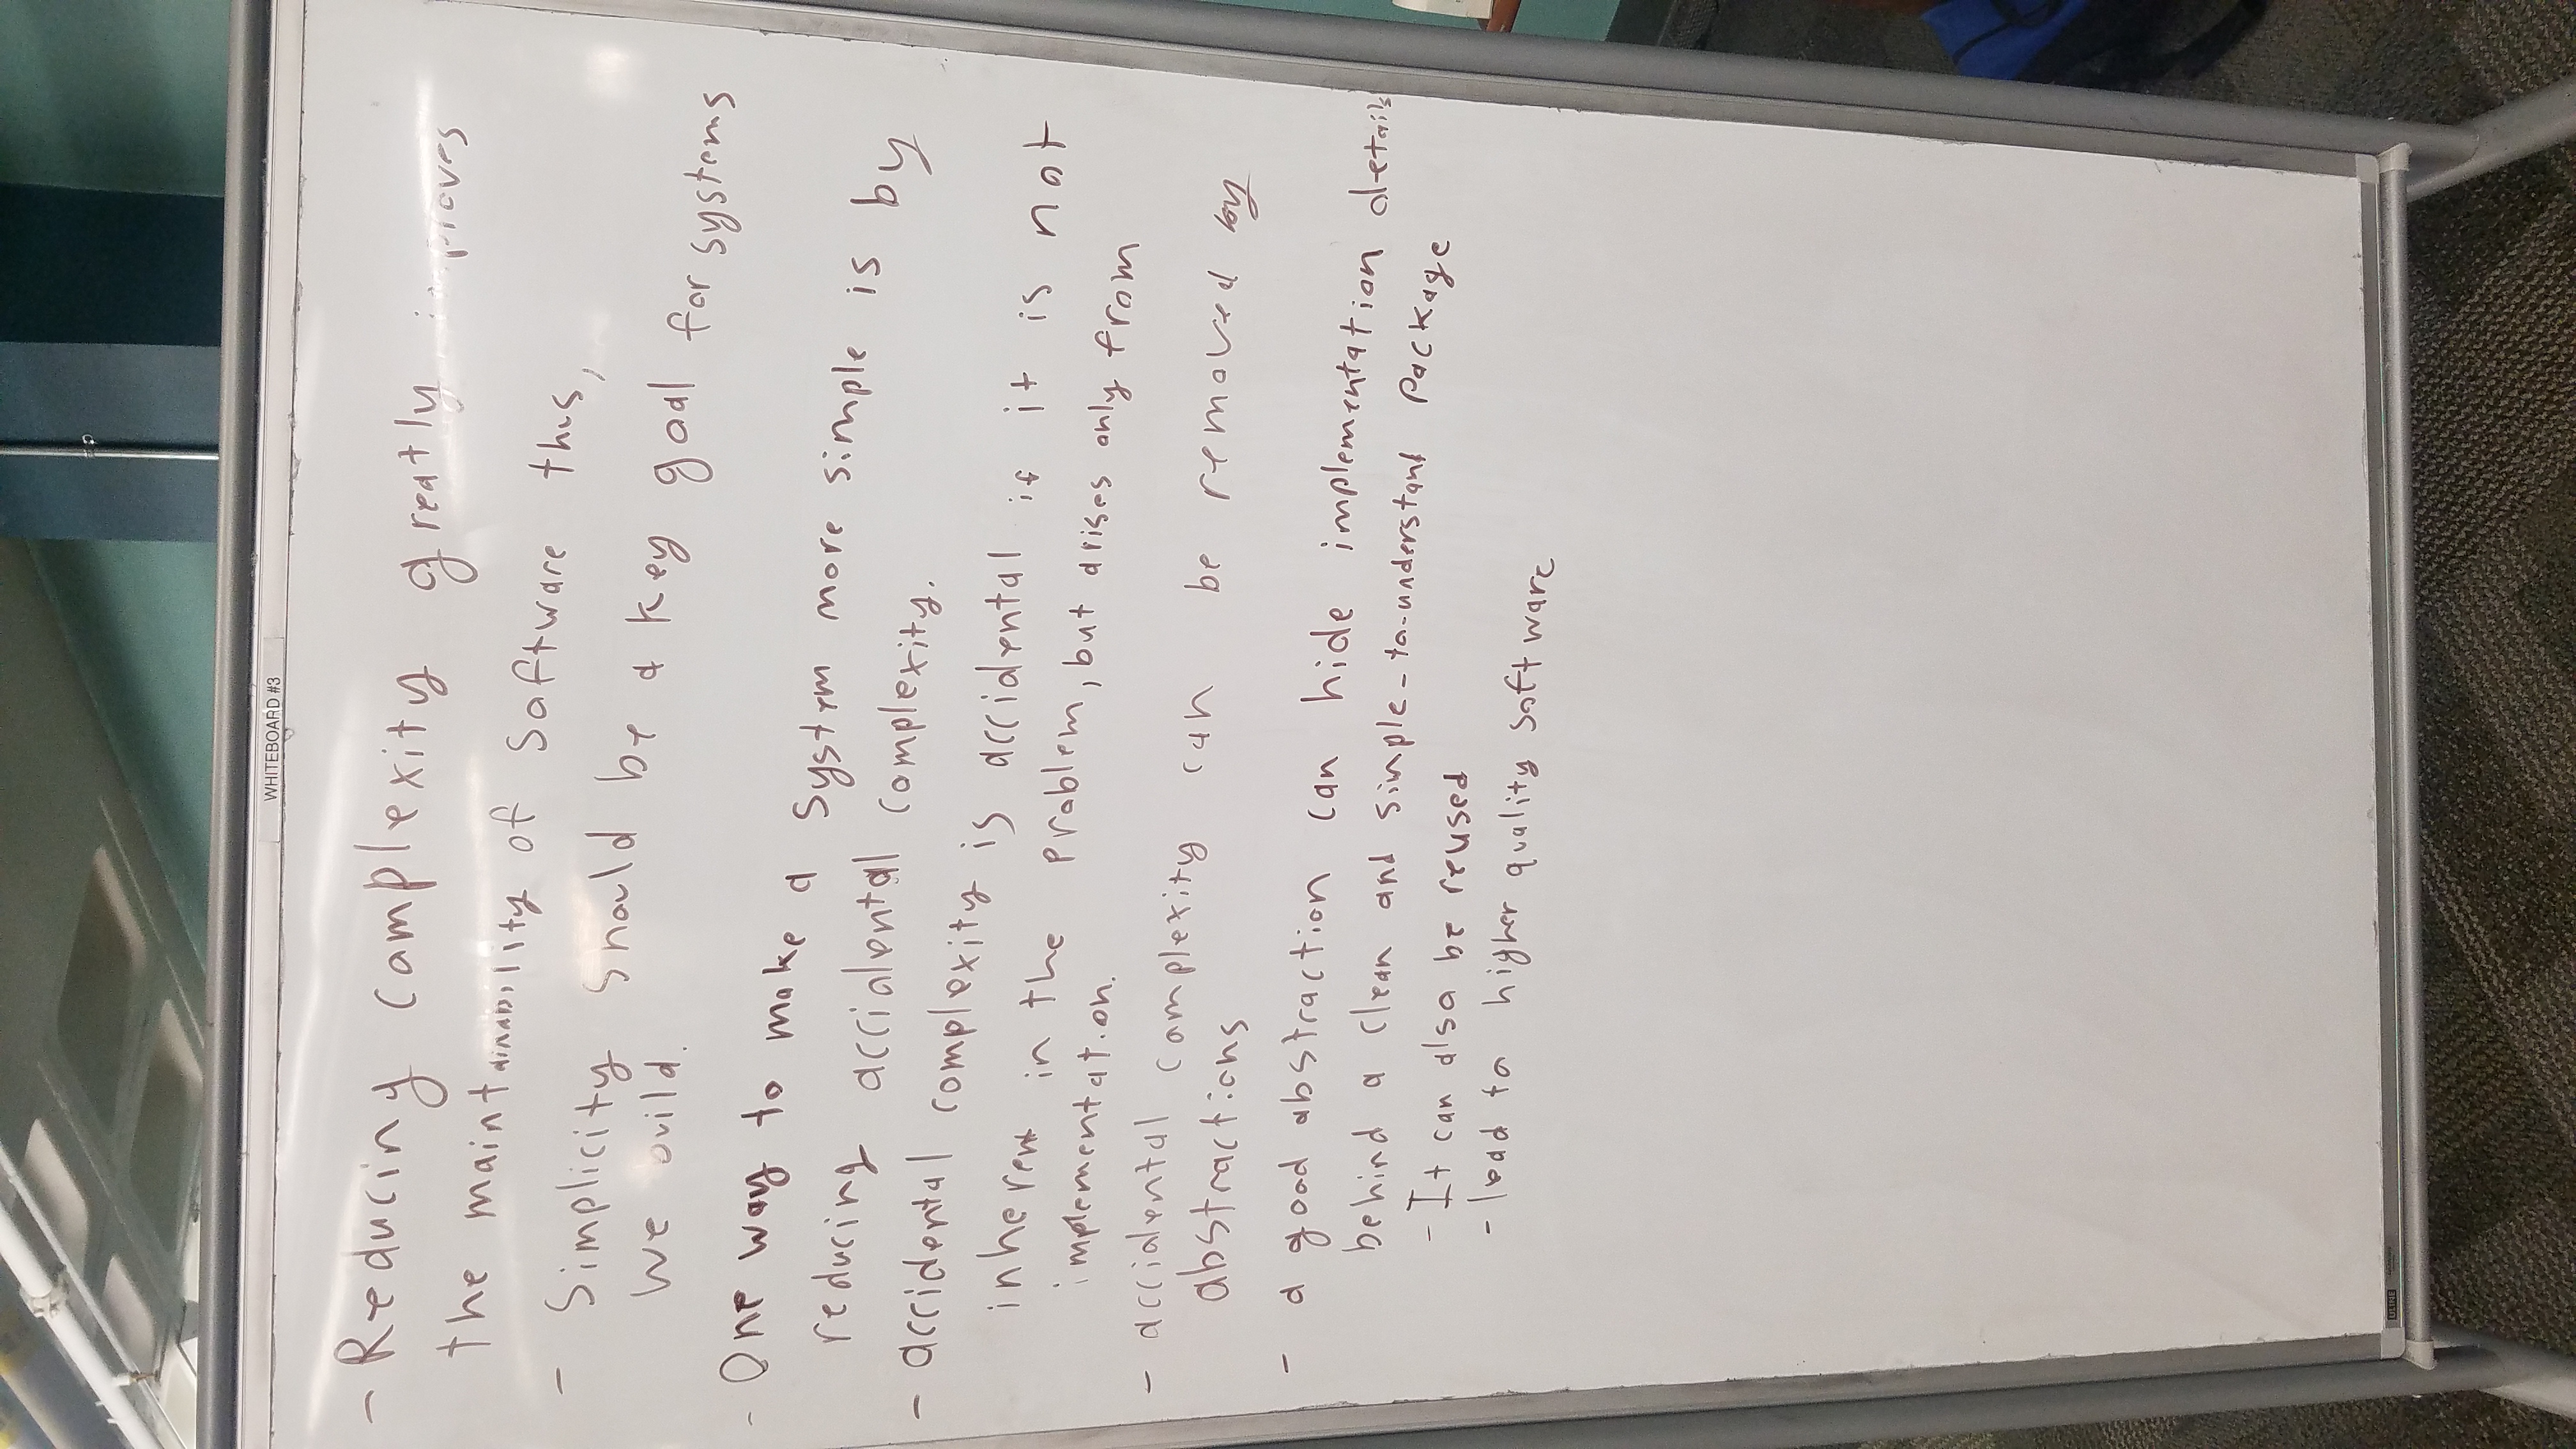 WHITEBOARD #3
- Reducing complexity greatly improves
the maintainability of software thus,
- Simplicity should be a key goal for systems
we build.
- One way to make a system more simple is by
reducing accidental complexity.
- accidental complexity is accidental if it is not
inherent in the problem, but arises only from
implementation.
- accidental complexity can be removed by
abstractions
- a good abstraction can hide implementation details
behind a clean and simple-to-understand package
- It can also be reused
- lead to higher quality software
ULINE